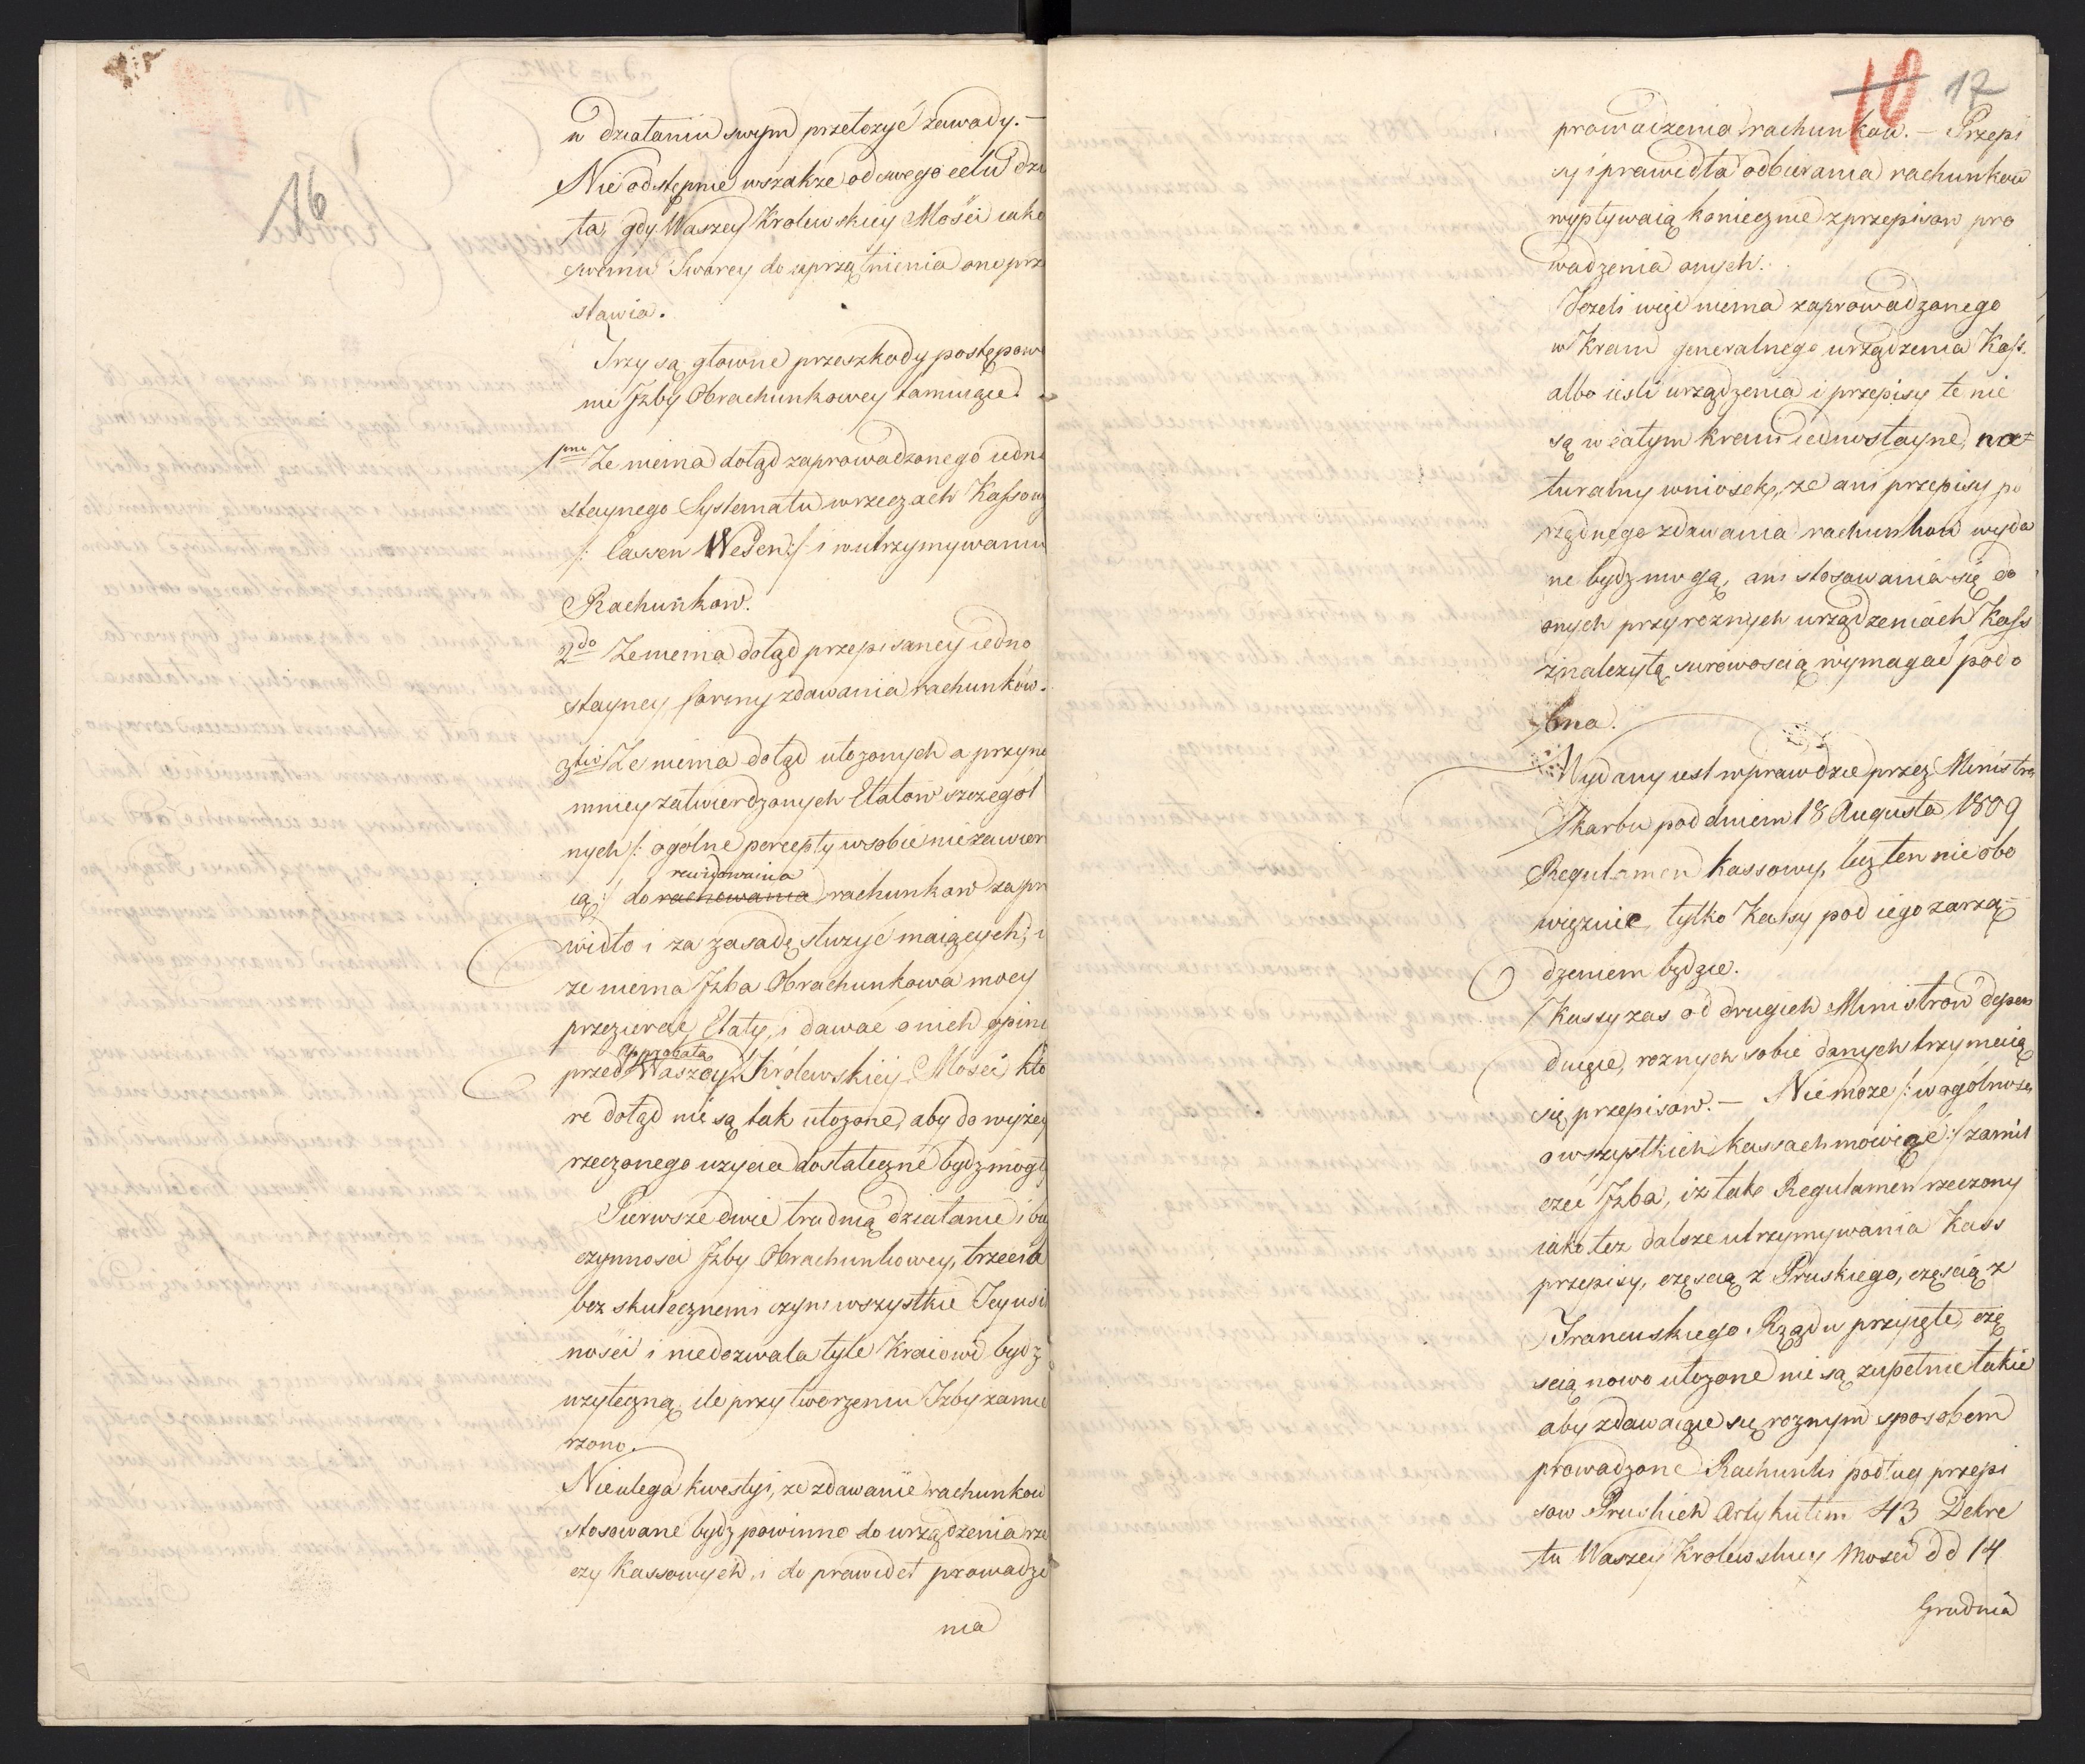 16
w działaniu swym przełożyć zawady. —
Nieodstępnie wszakże od swego celu dzia
ła, gdy Waszey Krolewskiey Mości iako
swemu Stworcy do uprzątnienia one prze
stawia.
Trzy są głowne przeszkody postępowa
niu Jzby Obrachunkowey tamuiące.
1mo Ze niema dotąd zaprowadzonego iedno
staynego Systematu w rzeczach Kassowy
/: Cassen Wesen :/ i w utrzymywaniu
Rachunkow.
2do Ze niema dotąd przepisaney iedno
stayney formy zdawania rachunków.
3tio Ze niema dotąd ułożonych a przynay
mniey zatwierdzonych Etatow szczegól
nych /: ogólne percepty w sobie niezawier
ią :/ do rachowania rewidowania rachunkow za pra
widło i za zasadę służyć maiących, i
ze niema Jzba Obrachunkowa mocy
przezierać Etaty, i dawać o nich opini
przed approbatą Waszey Królewskiey Mości, kto
re dotąd nie są tak ułozone, aby do wyżey
rzeczonego uzycia dostateczne bydz mogły
Pierwsze dwie trudnią działanie i
czynnosci Jzby Obrachunkowey, trzecia
bez skutecznemi czyni wszystkie Jey usil
ności i niedozwala tyle Kraiowi bydz
uzyteczną, ile przy tworzeniu Jzby zamie
rzono.
Nieulega kwestyi, ze zdawanie rachunkow
stosowane bydz powinno do urządzenia rze
czy Kassowych, i do prawideł prowadze
nia
10 17
prowadzenia rachunkow. — Przepi
sy i prawidła odbierania rachunkow
wypływaią koniecznie z przepisow pro
wadzenia onych.
Jezeli więc niema zaprowadzonego
w Kraiu generalnego urządzenia Kass.
albo iesli urządzenia i przepisy te nie
są w całym kraiu iednostayne, na=
turalny wniosek, ze ani przepisy po
rządnego zdawania rachunkow wyda
ne bydz mogą, ani stosowania się do
onych przy roznych urządzeniach Kass
z nalezytą surowoscią wymagać podo
bna.
Wydany iest wprawdzie przez Ministra
Skarbu pod dniem 18 Augusta 1809
Regulamen Kassowy, lecz ten nie obo
więzuie, tylko Kassy pod iego zarzą=
dzeniem będące.
Kassy zas od drugich Ministrow depen
duiące, roznych sobie danych trzymaią
się przepisow. — Niemoze /: w ogólnosci
o wszystkich kassach mowiąc :/ zamil
czeć Jzba, iz tak Regulamen rzeczony
iako tez dalsze utrzymywania Kass
przepisy, częscią z Pruskiego, częscią z
Francuskiego Rządu przyięte, czę
scią nowo ułozone nie są zupełnie takie
aby zdawaiące się roznym sposobem
prowadzone Rachunki podług przepi
sow Pruskich Artykułem 43 Dekre
tu Waszey Krolewskiey Mosci dd 14
Grudnia